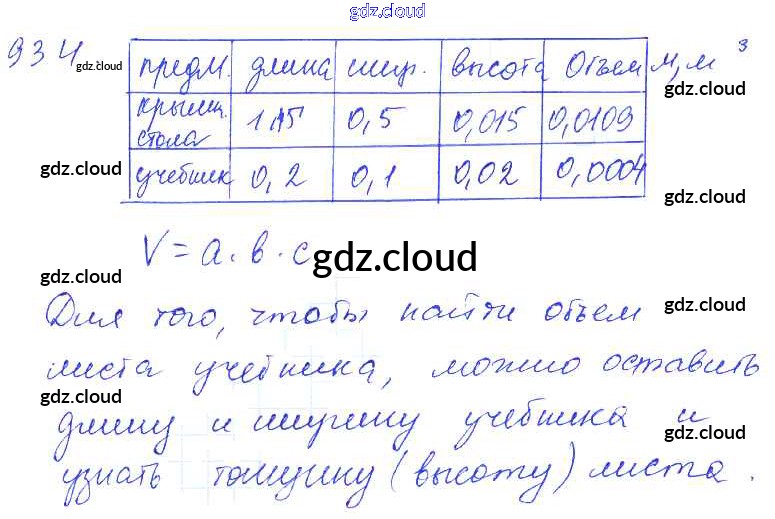 gdz.cloud
934 gdz.cloud
предм. длина шир. высота Объем м, м³
gdz.cloud
крышк. стола 1,15 0,5 0,015 0,0109
gdz.cloud
учебник 0,2 0,1 0,02 0,0004
gdz.cloud
V = a · b · c
gdz.cloud
gdz.cloud
Для того, чтобы найти объем
gdz.cloud
листа учебника, можно оставить
gdz.cloud
длину и ширину учебника и
gdz.cloud
узнать толщину (высоту) листа.